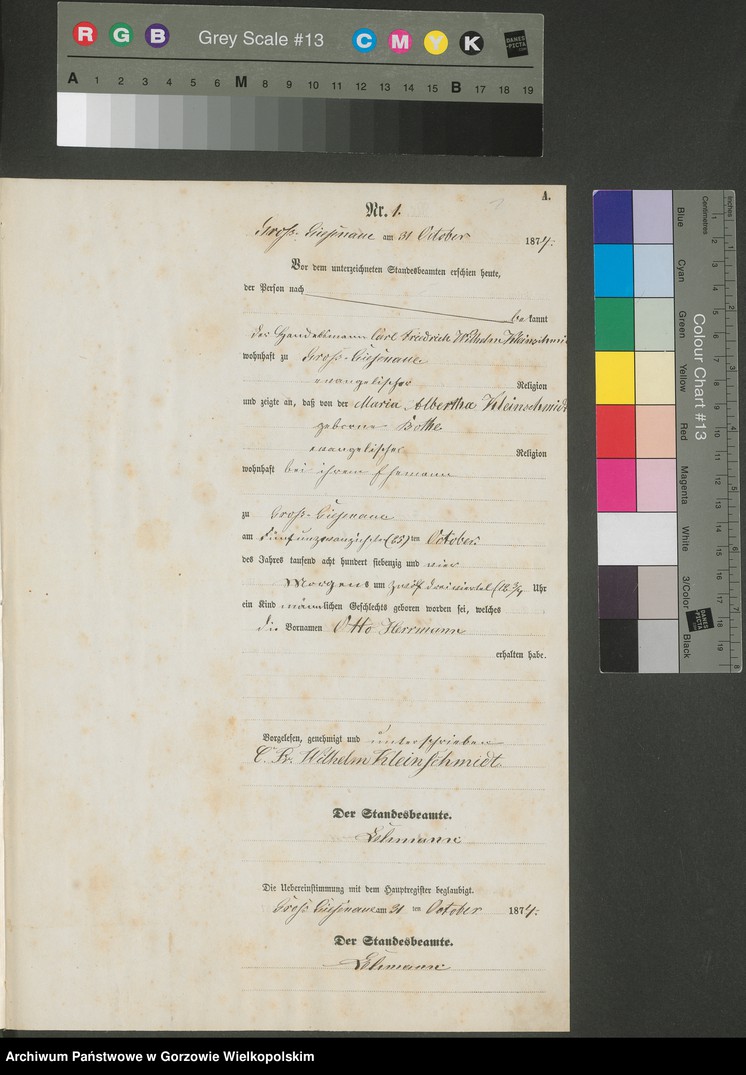 R G B Grey Scale #13 C M Y K DANES-PICTA
A 1 2 3 4 5 6 M 8 9 10 11 12 13 14 15 B 17 18 19
A.
Nr. 1.
Gross- am 31 October 1874.
Vor dem unterzeichneten Standesbeamten erschien heute,
der Person nach
be kannt
der Handelsmann Carl Friedrich Wilhelm Kleinschmidt
wohnhaft zu Gross-
evangelischer Religion
und zeigte an, daß von der Maria Albertha Kleinschmidt
geborne Bothe
evangelischer Religion
wohnhaft bei ihrem Ehemann
zu Gross-
am (25) ten October
des Jahres tausend acht hundert siebenzig und vier
Morgens um zwölf dreiviertel (12 3/4 Uhr
ein Kind männlichen Geschlechts geboren worden sei, welches
die Vornamen Otto Herrmann
erhalten habe.
Vorgelesen, genehmigt und unterschrieben
C. Fr. Wilhelm Kleinschmidt
Der Standesbeamte.
Lehmann
Die Uebereinstimmung mit dem Hauptregister beglaubigt.
Gross am 31 ten October 1874.
Der Standesbeamte.
Lehmann
Colour Chart #13
Blue Cyan Green Yellow Red Magenta White 3/Color Black
Centimetres Inches
DANES-PICTA
Archiwum Państwowe w Gorzowie Wielkopolskim